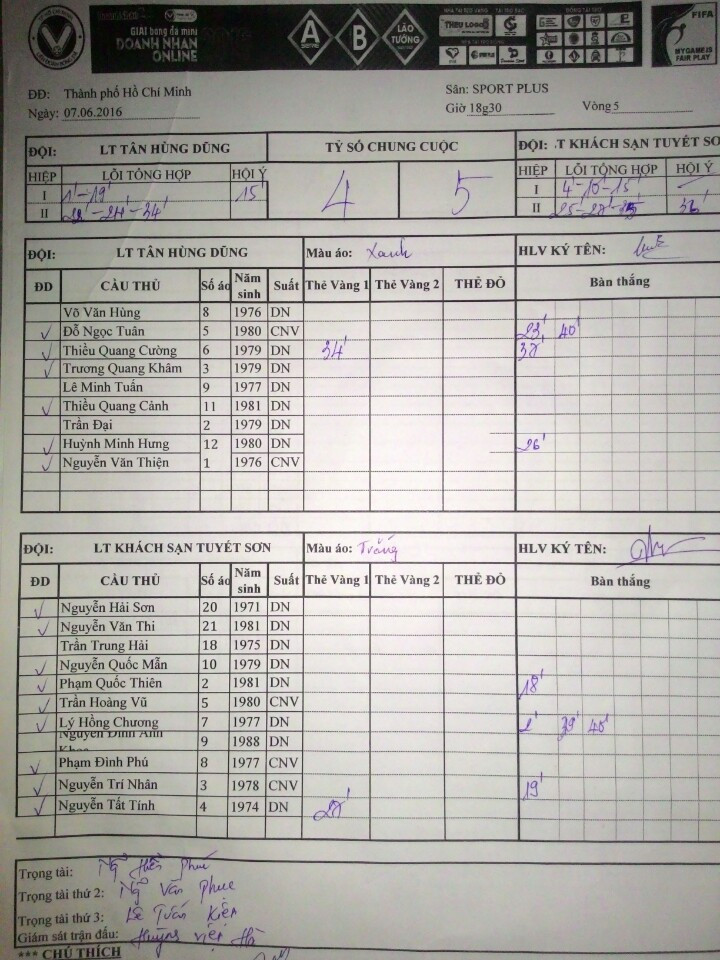 GIẢI bóng đá mini
DOANH NHÂN
ONLINE
A
B
LÃO
TƯỚNG
FIFA
MY GAME IS
FAIR PLAY
ĐĐ: Thành phố Hồ Chí Minh Sân: SPORT PLUS
Ngày: 07.06.2016 Giờ 18g30 Vòng 5
ĐỘI: LT TÂN HÙNG DŨNG TỶ SỐ CHUNG CUỘC ĐỘI: .T KHÁCH SẠN TUYẾT SƠ
HIỆP LỖI TỔNG HỢP HỘI Ý 4 5 HIỆP LỖI TỔNG HỢP HỘI Ý
I 1'-19' 15' I 4'-10'-15'
II II
ĐỘI: LT TÂN HÙNG DŨNG Màu áo: Xanh HLV KÝ TÊN:
ĐD CẦU THỦ Số áo Năm sinh Suất Thẻ Vàng 1 Thẻ Vàng 2 THẺ ĐỎ Bàn thắng
Võ Văn Hùng 8 1976 DN
Đỗ Ngọc Tuân 5 1980 CNV 23' 40'
Thiều Quang Cường 6 1979 DN 34'
Trương Quang Khâm 3 1979 DN
Lê Minh Tuấn 9 1977 DN
Thiều Quang Cảnh 11 1981 DN
Trần Đại 2 1979 DN
Huỳnh Minh Hưng 12 1980 DN 26'
Nguyễn Văn Thiện 1 1976 CNV
ĐỘI: LT KHÁCH SẠN TUYẾT SƠN Màu áo: Trắng HLV KÝ TÊN:
ĐD CẦU THỦ Số áo Năm sinh Suất Thẻ Vàng 1 Thẻ Vàng 2 THẺ ĐỎ Bàn thắng
Nguyễn Hải Sơn 20 1971 DN
Nguyễn Văn Thi 21 1981 DN
Trần Trung Hải 18 1975 DN
Nguyễn Quốc Mẫn 10 1979 DN
Phạm Quốc Thiên 2 1981 DN 18'
Trần Hoàng Vũ 5 1980 CNV
Lý Hồng Chương 7 1977 DN 2' 39' 40'
Nguyễn Đình Anh 9 1988 DN
Phạm Đình Phú 8 1977 CNV
Nguyễn Trí Nhân 3 1978 CNV 19'
Nguyễn Tất Tính 4 1974 DN
Trọng tài: Ng Hiền Phú
Trọng tài thứ 2: Ng Văn Phục
Trọng tài thứ 3: Lê Tuấn Kiện
Giám sát trận đấu: Huỳnh Viện Hà
*** CHÚ THÍCH